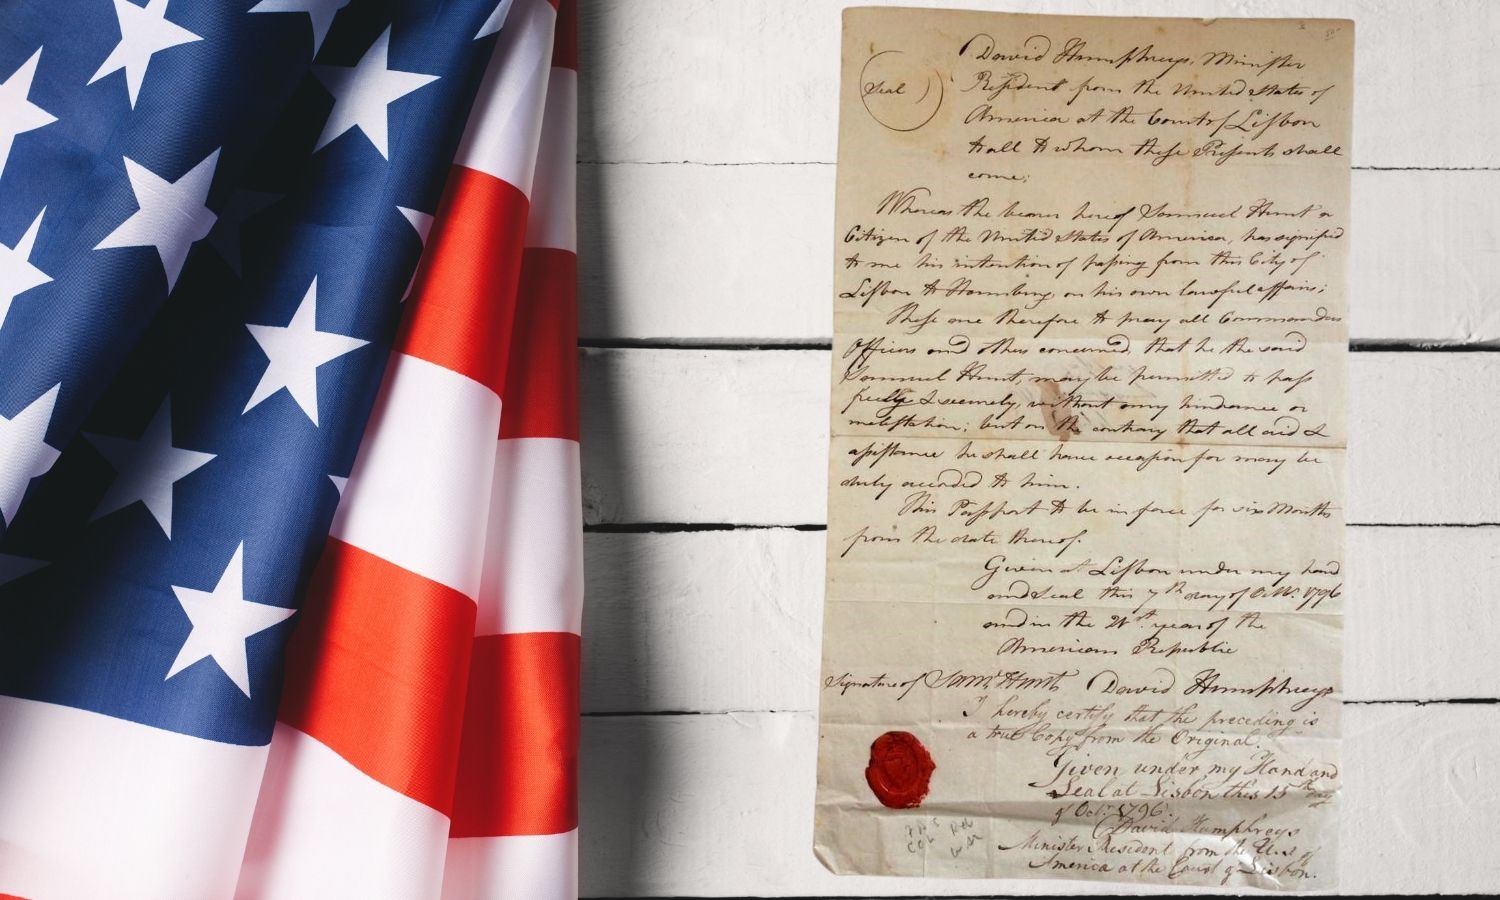 Seal
David Humphreys, Minister
Resident from the United States of
America at the Court of Lisbon
to all to whom these Presents shall
come;
Whereas the bearer hereof Samuel Hunt a
Citizen of the United States of America, has signified
to me his intention of passing from this City of
Lisbon to Hamburg, on his own lawful affairs;
These are therefore to pray all Commanders
Officers and others concerned, that he the said
Samuel Hunt, may be permitted to pass
freely & securely, without any hindrance or
molestation; but on the contrary that all aid &
assistance he shall have occasion for may be
duly accorded to him.
This Passport to be in force for six Months
from the date thereof.
Given at Lisbon under my hand
and Seal this 7th day of Octr. 1796
and in the 21st. year of the
American Republic
Signature of Saml. Hunt David Humphreys
I hereby certify that the preceding is
a true Copy from the Original.
Given under my Hand and
Seal at Lisbon this 15th day
of Octr. 1796.
David Humphreys
Minister Resident from the U.S. of
America at the Court of Lisbon.